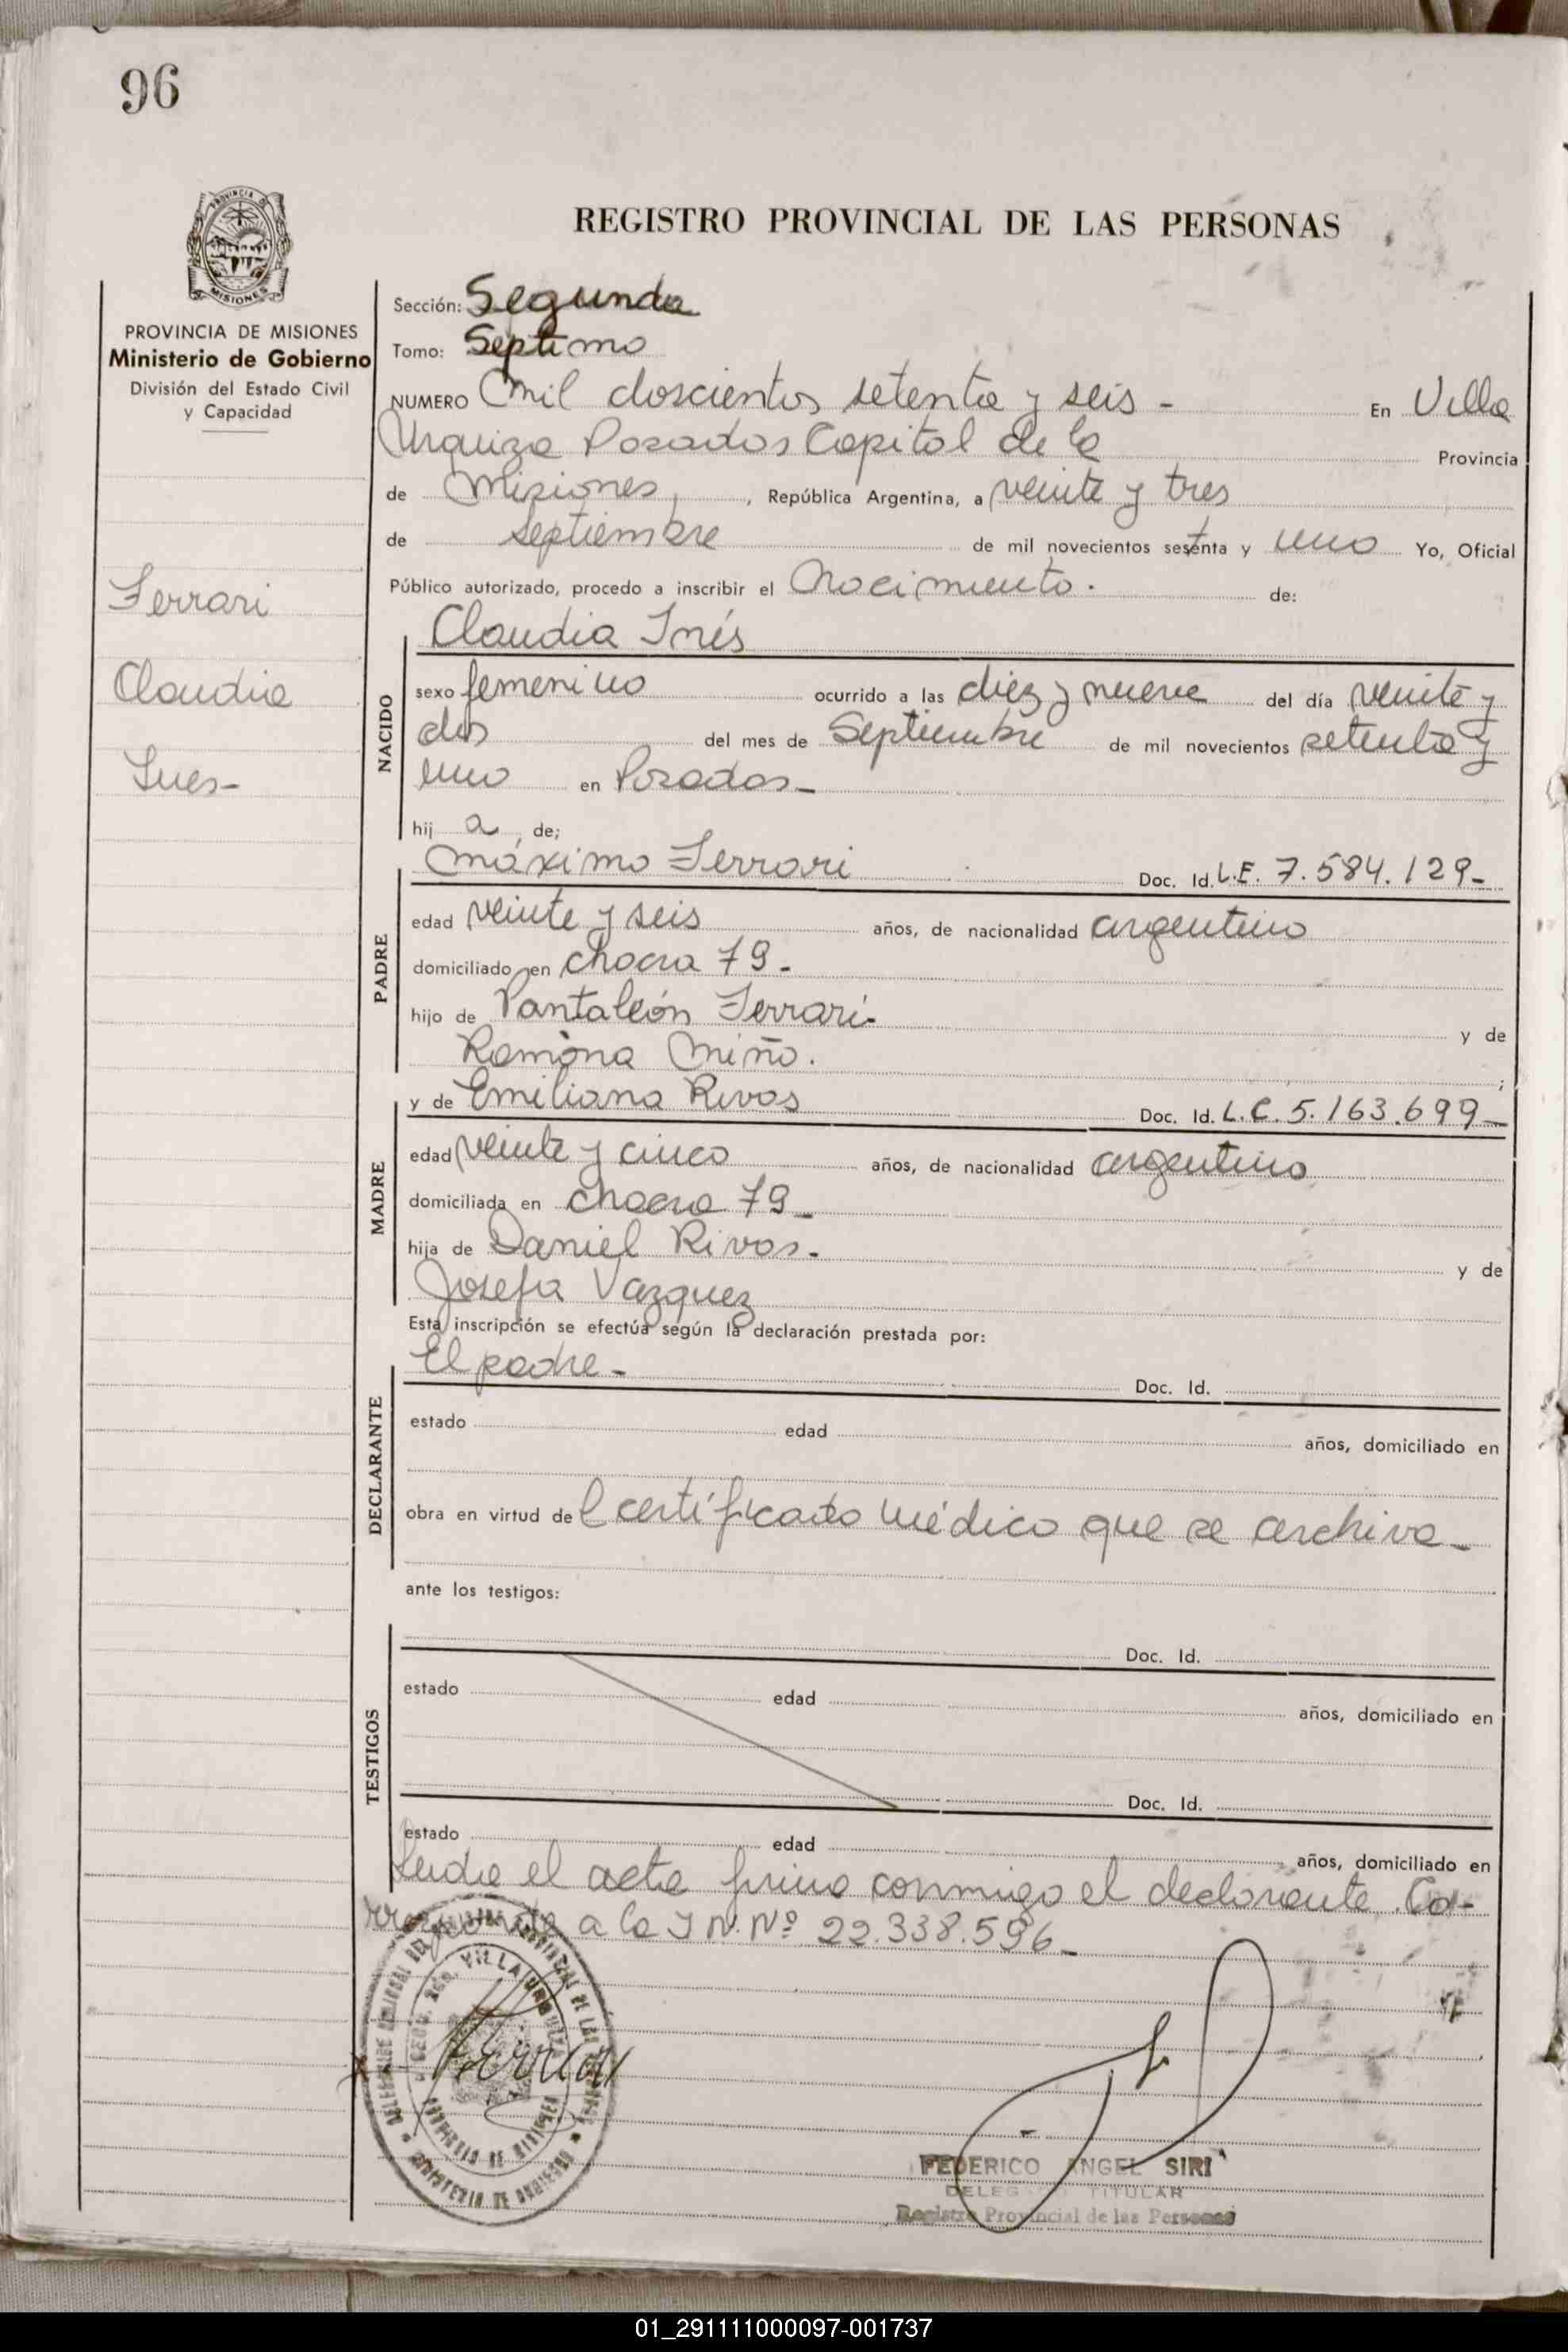 96
REGISTRO PROVINCIAL DE LAS PERSONAS
PROVINCIA DE MISIONES
Ministerio de Gobierno
División del Estado Civil
y Capacidad
Ferrari
Claudia
Ines-
Sección: Segunda
Tomo: Septimo
NUMERO Mil doscientos setenta y seis - En Villa
Urquiza Posadas Capital de la Provincia
de Misiones, , República Argentina, a veinte y tres
de septiembre de mil novecientos setenta y uno Yo, Oficial
Público autorizado, procedo a inscribir el Nacimiento. de:
NACIDO
Claudia Inés
sexo femenino ocurrido a las diez y nueve del día veinte y
dos del mes de Septiembre de mil novecientos setenta y
uno en Posadas-
hij a , de;
PADRE
Máximo Ferrari Doc. Id. L.E. 7.584.129-
edad veinte y seis años, de nacionalidad argentino
domiciliado en chacra 79-
hijo de Pantaleón Ferrari- y de
Ramona Miño. ;
MADRE
y de Emiliana Rivas Doc. Id. L.C. 5.163.699-
edad veinte y cinco años, de nacionalidad argentina
domiciliada en chacra 79-
hija de Daniel Rivas- y de
Josefa Vazquez
Esta inscripción se efectúa según la declaración prestada por:
DECLARANTE
El padre- Doc. Id.
estado edad años, domiciliado en
obra en virtud del certificado médico que se archiva-
ante los testigos:
TESTIGOS
Doc. Id.
estado edad años, domiciliado en
Doc. Id.
estado edad años, domiciliado en
Leida el acta firma conmigo el declarante. Co-
rresponde a la I N. Nº 22.338.596-
VILLA URQUIZA
MINISTERIO DE GOBIERNO
FEDERICO ANGEL SIRI
DELEGADO TITULAR
Registro Provincial de las Personas
01_291111000097-001737